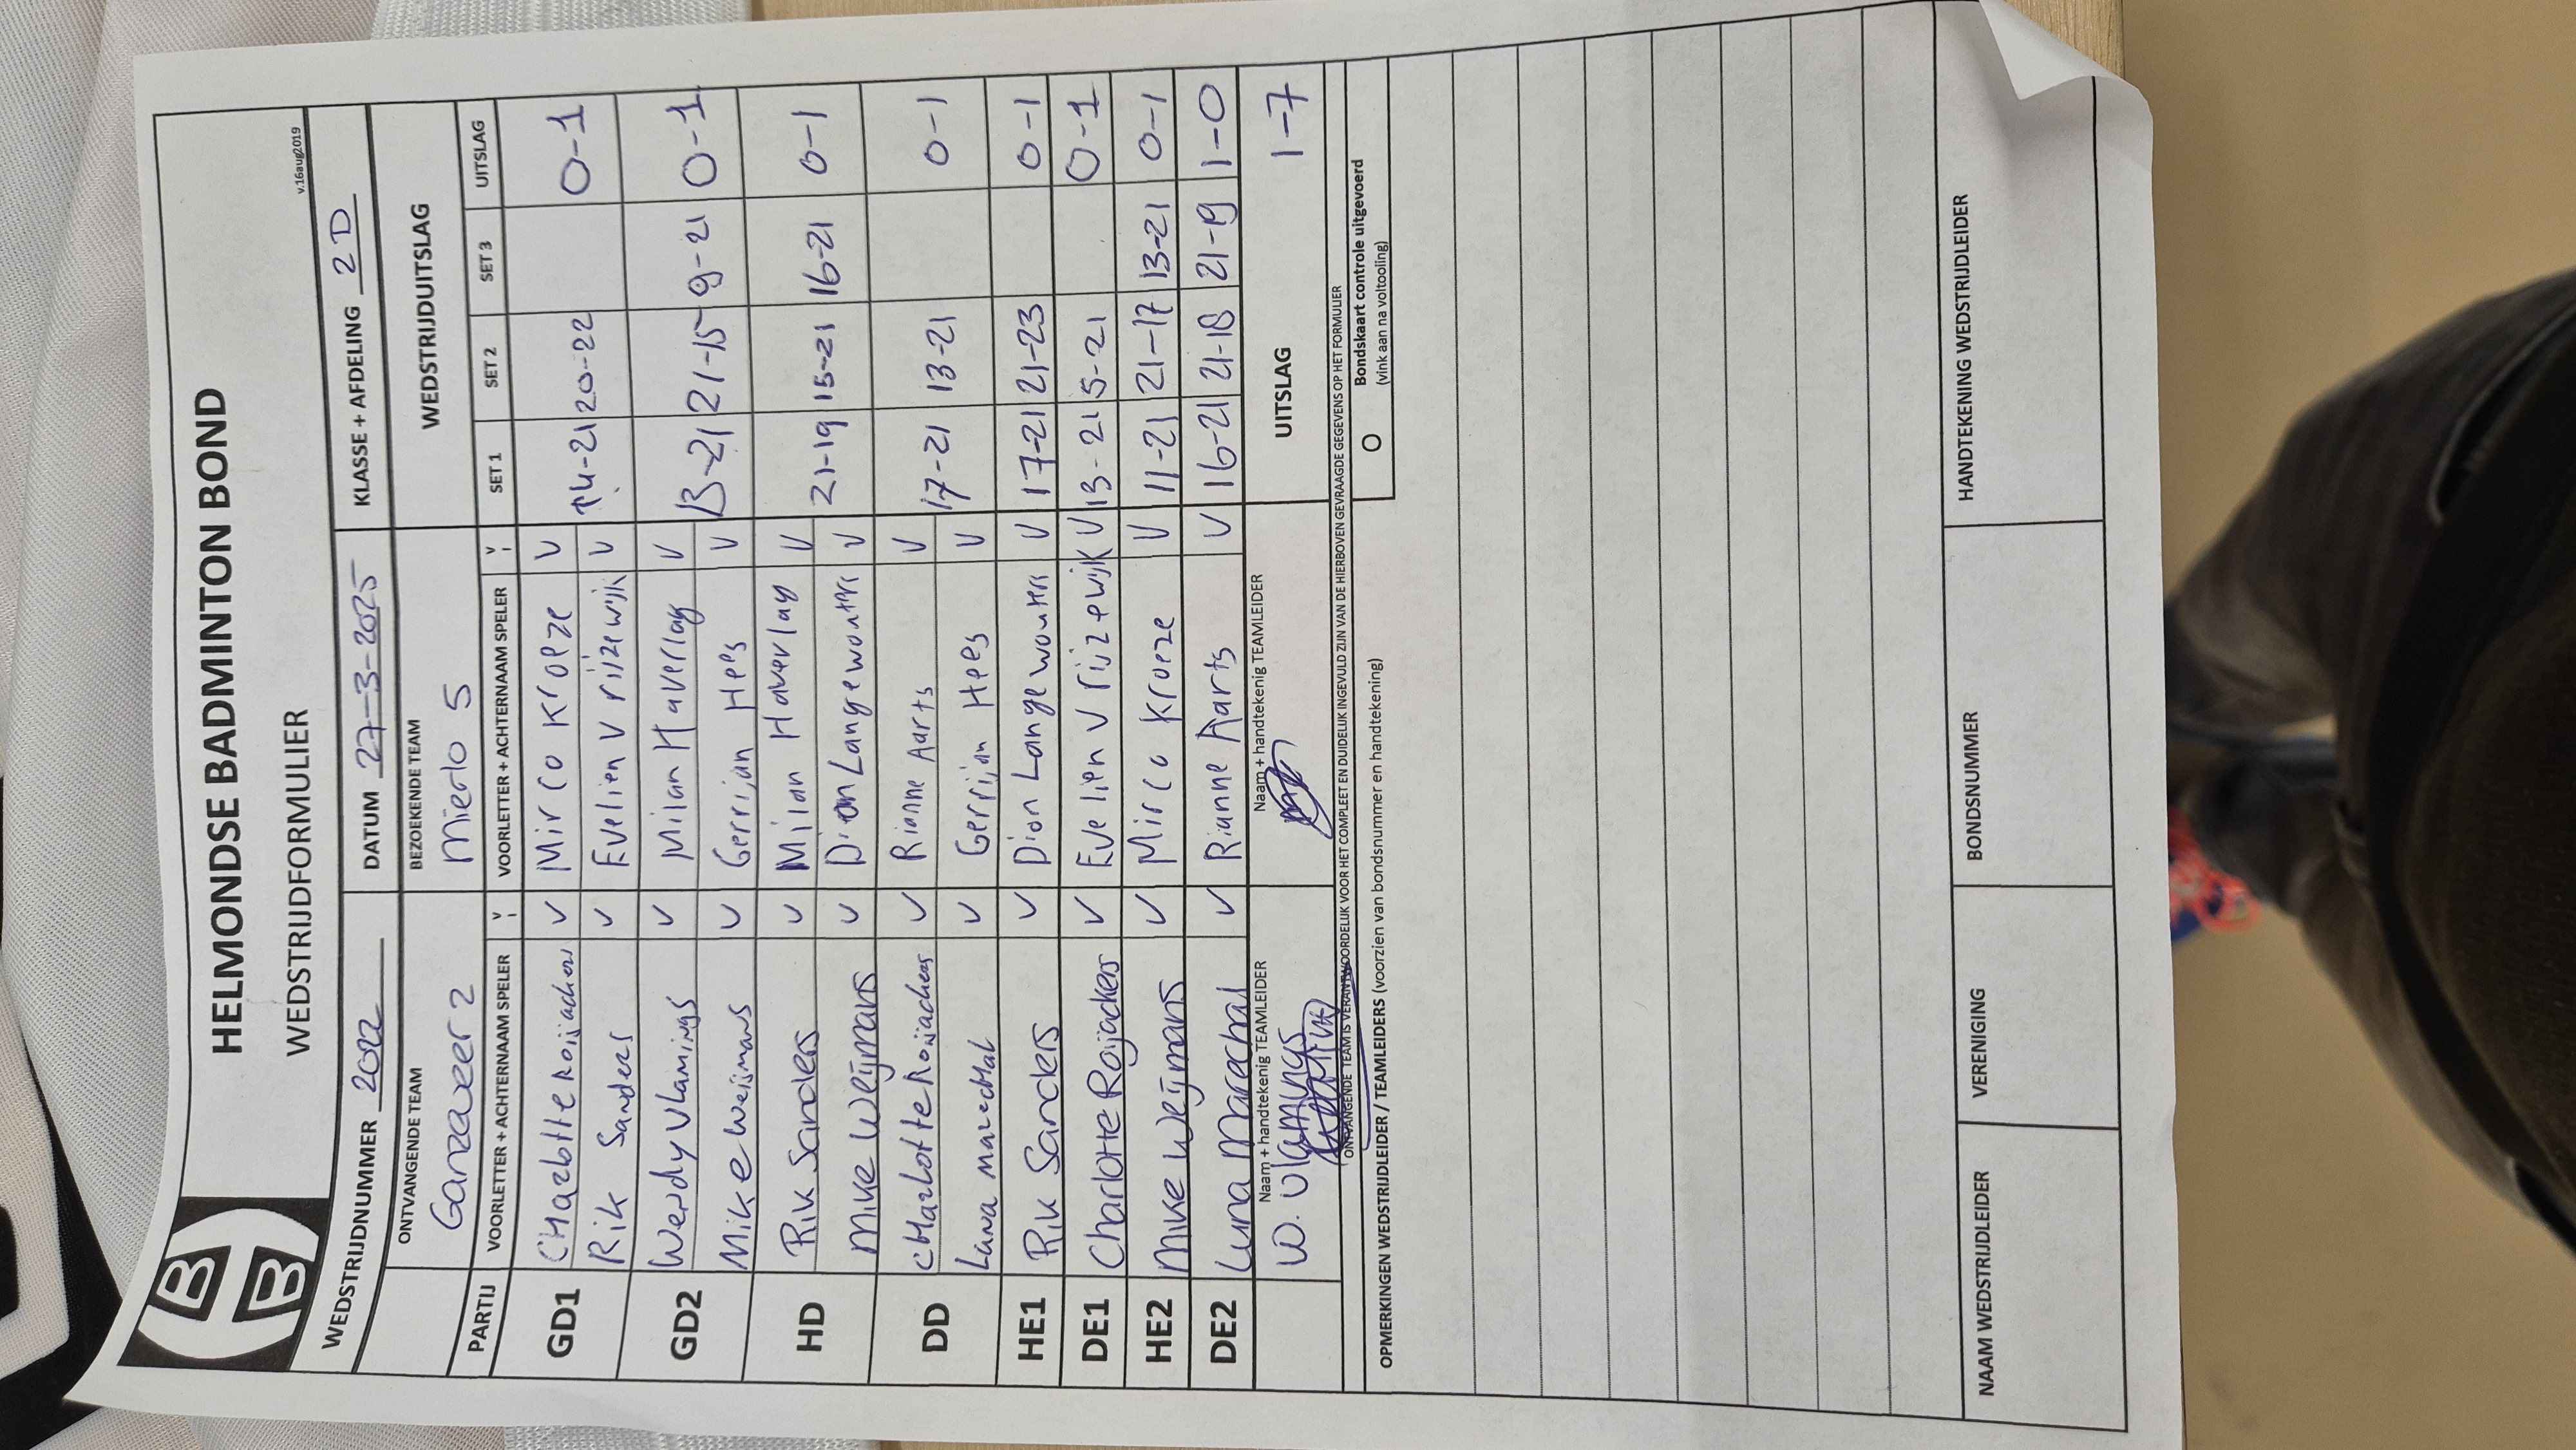 HELMONDSE BADMINTON BOND
WEDSTRIJDFORMULIER
v.16aug2019
WEDSTRIJDNUMMER 2022 DATUM 27-3-2025 KLASSE + AFDELING 2D
ONTVANGENDE TEAM BEZOEKENDE TEAM WEDSTRIJDUITSLAG
Ganzaveer 2 Mierlo 5
PARTIJ VOORLETTER + ACHTERNAAM SPELER V VOORLETTER + ACHTERNAAM SPELER V SET 1 SET 2 SET 3 UITSLAG
GD1 CHarlotte Roijackers V Mirco Kroeze V 14-21 20-22 0-1
Rik Sanders V Evelien Vrijzewijk V
GD2 Werdy Vlamings V Milan Haverlag V 13-21 21-15 9-21 0-1
Mike Weijmans V Gerrijan Hees V
HD Rik Sanders V Milan Haverlag V 21-19 15-21 16-21 0-1
Mike Weijmans V Dion Langewouters V
DD CHarlotte Roijackers V Rianne Aarts V 17-21 13-21 0-1
Luna Marechal V Gerrijan Hees V
HE1 Rik Sanders V Dion Langewouters V 17-21 21-23 0-1
DE1 Charlotte Roijackers V Evelien Vrijzewijk V 13-21 5-21 0-1
HE2 Mike Weijmans V Mirco Kroeze V 11-21 21-17 13-21 0-1
DE2 Luna Marechal V Rianne Aarts V 16-21 21-18 21-19 1-0
Naam + handtekenig TEAMLEIDER Naam + handtekenig TEAMLEIDER UITSLAG 1-7
W. Vlamings
ONTVANGENDE TEAM IS VERANTWOORDELIJK VOOR HET COMPLEET EN DUIDELIJK INGEVULD ZIJN VAN DE HIERBOVEN GEVRAAGDE GEGEVENS OP HET FORMULIER
OPMERKINGEN WEDSTRIJDLEIDER / TEAMLEIDERS (voorzien van bondsnummer en handtekening)
O Bondskaart controle uitgevoerd
(vink aan na voltooling)
NAAM WEDSTRIJDLEIDER VERENIGING BONDSNUMMER HANDTEKENING WEDSTRIJDLEIDER